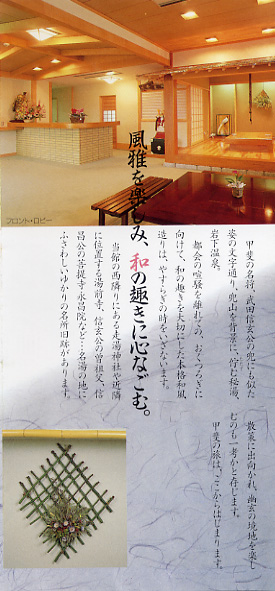 フロント・ロビー
風雅を楽しみ、和の趣きに心なごむ。
甲斐の名将、武田信玄公の兜にも似た
姿の文字通り、兜山を背景に、佇む秘湯、
岩下温泉。
都会の喧騒を離れての、おくつろぎに
向けて、和の趣きを大切にした本格和風
造りは、やすらぎの時をいざないます。
当館の西隣りにある走湯神社や近隣
に位置する湯前寺、信玄公の曽祖父、信
昌公の菩提寺永昌院など…名湯の地に
ふさわしいゆかりの名所旧跡があります。
散策に出向かれ、幽玄の境地を楽し
むのも一考かと存じます。
甲斐の旅は、ここからはじまります。